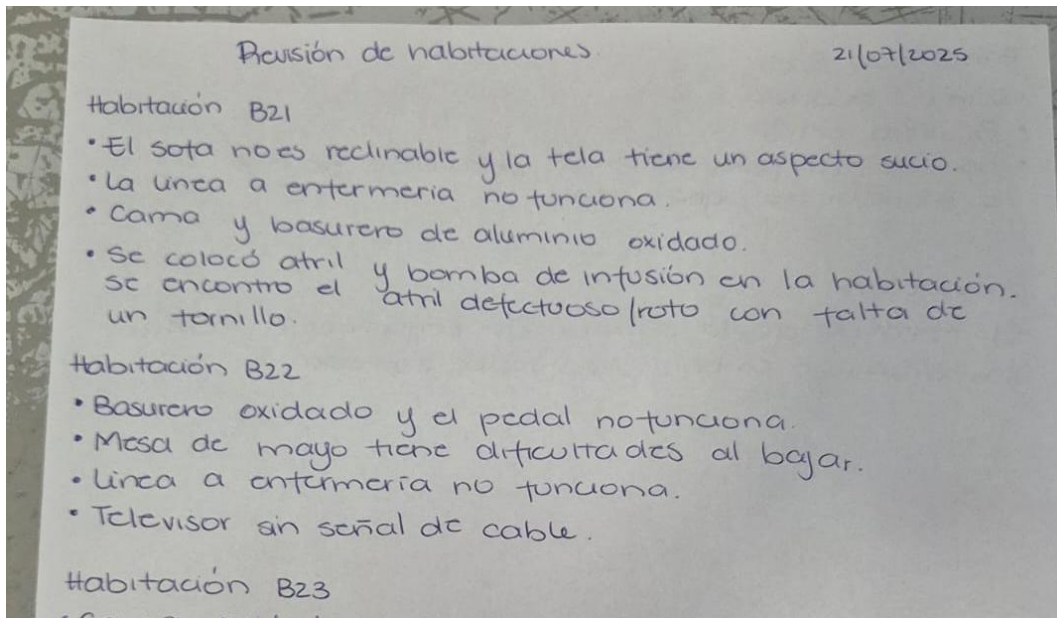 Revisión de habitaciones.
21/07/2025
Habitación B21
• El sofa no es reclinable y la tela tiene un aspecto sucio.
• La línea a enfermería no funciona.
• Cama y basurero de aluminio oxidado.
• Se colocó atril y bomba de infusión en la habitación.
se encontro el atril defectuoso/roto con falta de
un tornillo.
Habitación B22
• Basurero oxidado y el pedal no funciona.
• Mesa de mayo tiene dificultades al bajar.
• Línea a enfermería no funciona.
• Televisor sin señal de cable.
Habitación B23